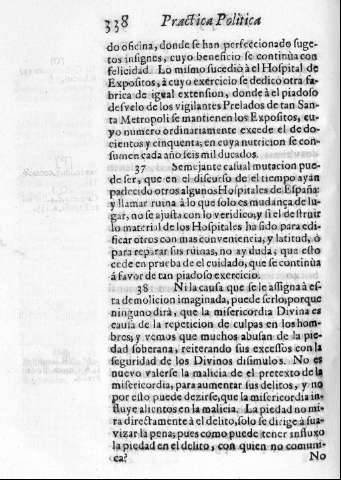 338 Practica Politica
do oficina, donde se han perfeccionado suge-
tos insignes, cuyo beneficio se continùa con
felicidad. Lo mismo sucediò à el Hospital de
Expositos, à cuyo exercio se dedicò otra fa-
brica de igual extension, donde à el piadoso
desvelo de los vigilantes Prelados de tan San-
ta Metropoli se mantienen los Expositos, cu-
yo numero ordinariamente excede el de do-
cientos y cinquenta, en cuya nutricion se con-
sumen cada año seis mil ducados.
37 Semejante casual mutacion pue-
de ser, que en el discurso de el tiempo ayan
padecido otros algunos Hospitales de España:
y llamar ruina à lo que solo es mudança de lu-
gar, no se ajusta con lo veridico, y si el destruir
lo material de los Hospitales ha sido para edi-
ficar otros con mas conveniencia, y latitud, ò
para reparar sus rùinas, no ay duda, que esto
cede en prueba de el cuidado, que se continùa
à favor de tan piadoso exercicio.
38 Ni la causa que se le assigna à es-
ta demolicion imaginada, puede serlo, porque
ninguno dirà, que la misericordia Divina es
causa de la repeticion de culpas en los hom-
bres, y vemos que muchos abusan de la pie-
dad soberana, reiterando sus excessos con la
seguridad de los Divinos disimulos. No es
nuevo valerse la malicia de el pretexto de la
misericordia, para aumentar sus delitos, y no
por esto puede dezirse, que la misericordia in-
fluye alientos en la malicia. La piedad no mi-
ra directamente à el delito, solo se dirige à sua-
vizar la pena, pues como puede tener influxo
la piedad en el delito, con quien no comuni-
ca? No